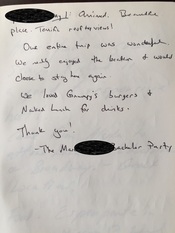 place. Terrific rooftop views!
Our entire trip was wonderful.
We really enjoyed the location & would
choose to stay here again.
We loved Gramapy's burgers &
Naked Lunch for drinks.
Thank you!
- The Ma Bachelor Party